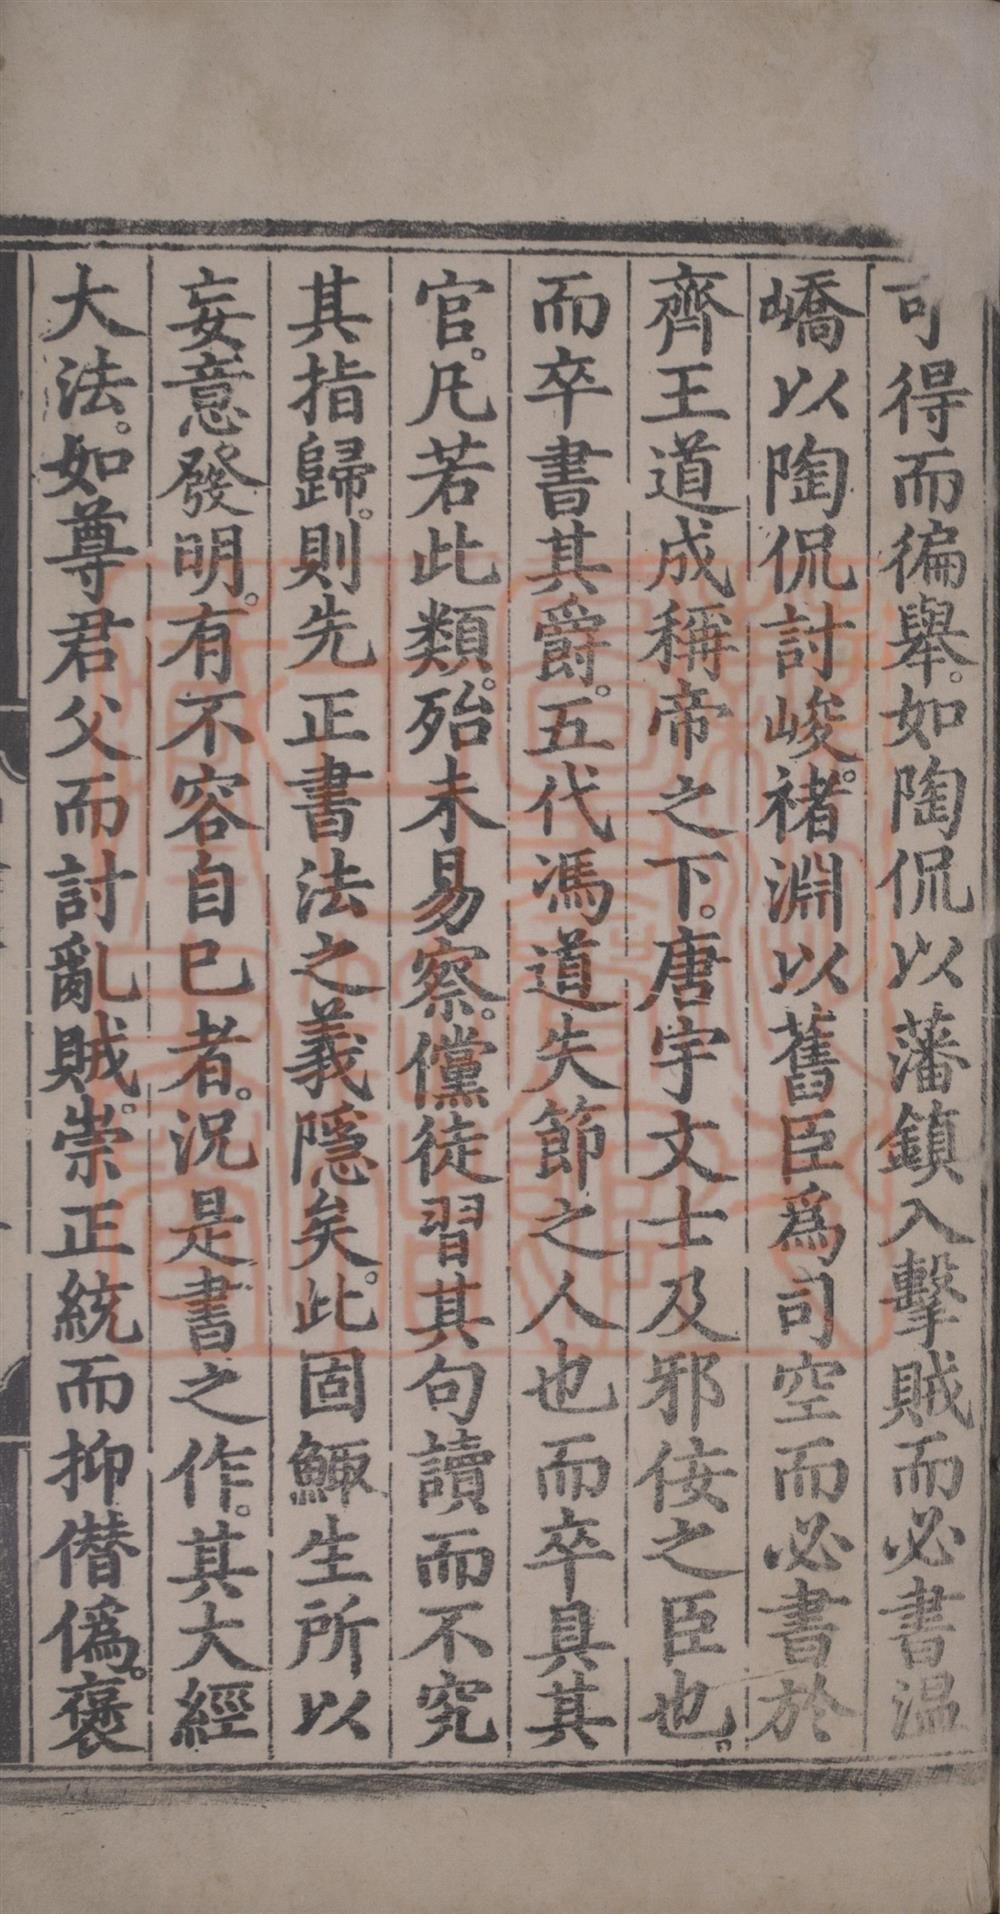 可得而徧舉。如陶侃以藩鎮入擊賊而必書温
嶠以陶侃討峻。褚淵以舊臣爲司空而必書於
齊王道成稱帝之下。唐宇文士及邪佞之臣也。
而卒書其爵。五代馮道失節之人也而卒具其
官。凡若此類。殆未易察。儻徒習其句讀而不究
其指歸。則先正書法之義隱矣。此固鯫生所以
妄意發明。有不容自已者。况是書之作。其大經
大法。如尊君父而討亂賊。崇正統而抑僭僞。褒